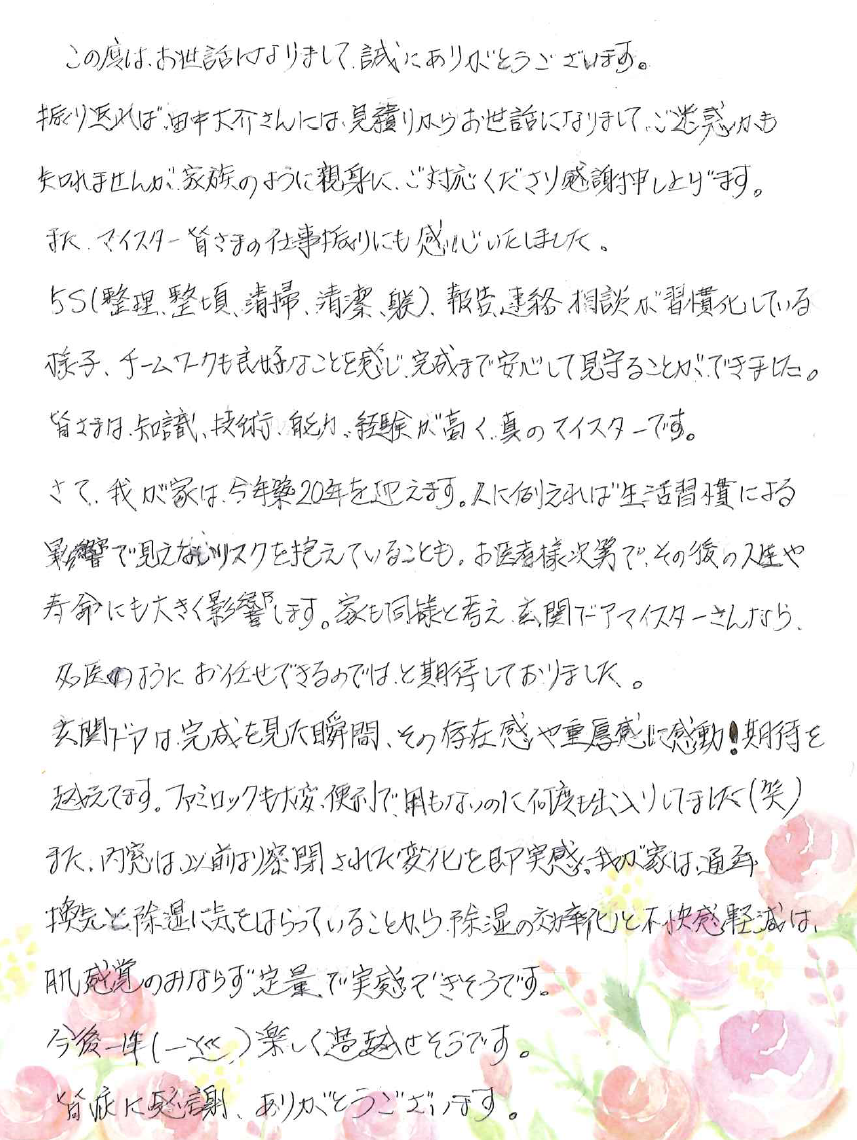 この度は、お世話になりまして、誠にありがとうございます。
振り返れば、田中大介さんには、見積りからお世話になりまして、ご迷惑かも
知れませんが、家族のように親身に、ご対応くださり感謝申し上げます。
また、マイスター皆さまの仕事振りにも感心いたしました。
5S(整理、整頓、清掃、清潔、躾)、報告、連絡、相談が習慣化している
様子、チームワークも良好なことを感じ、完成まで安心して見守ることができました。
皆さまは、知識、技術、能力、経験が高く、真のマイスターです。
さて、我が家は、今年築20年を迎えます。人に例えれば生活習慣による
影響で見えないリスクを抱えていることも。お医者様次第で、その後の人生や
寿命にも大きく影響します。家も同様と考え、玄関ドアマイスターさんなら、
名医のように お任せできるのでは、と期待しておりました。
玄関ドアは、完成を見た瞬間、その存在感や重厚感に感動!期待を
越えてます。ファミロックも大変、便利で、用もないのに何度も出入りしてました(笑)
また、内窓は、以前より密閉された変化を即実感。我が家は、通年
換気と除湿に気をはらっていることから、除湿の効率化と不快感軽減は、
肌感覚のみならず定量で実感できそうです。
今後一年(一巡)楽しく過越せそうです。
皆様に感謝、ありがとうございます。